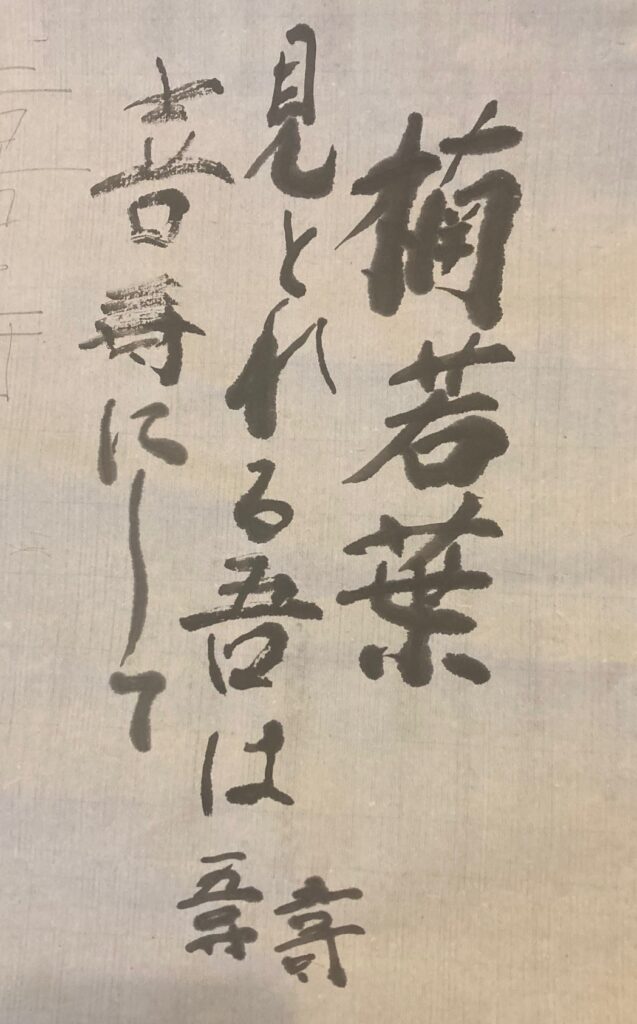 楠若葉
見とれる吾は
喜寿にして